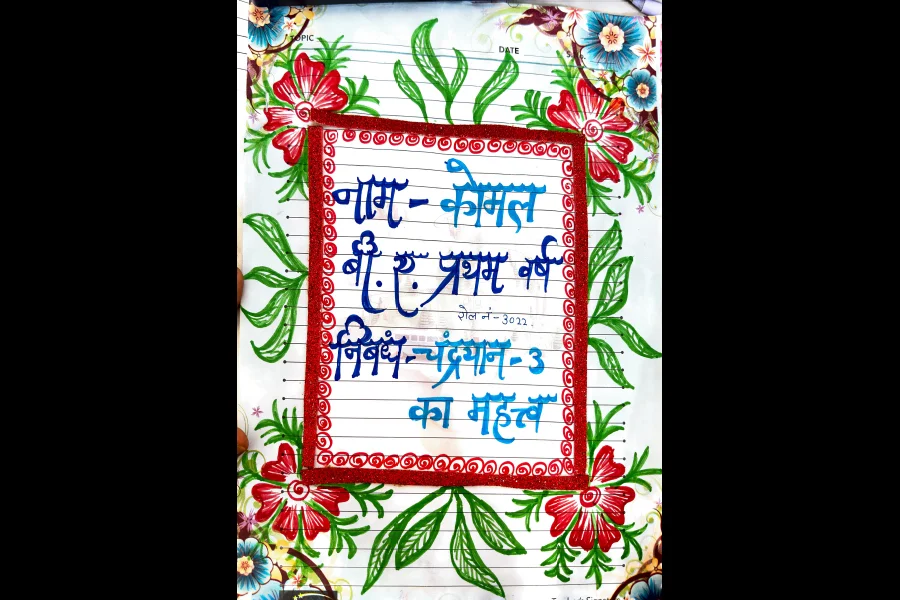 TOPIC
DATE
नाम - कोमल
बी. ए. प्रथम वर्ष
रोल नं - 3022.
निबंध - चंद्रयान - 3
का महत्त्व